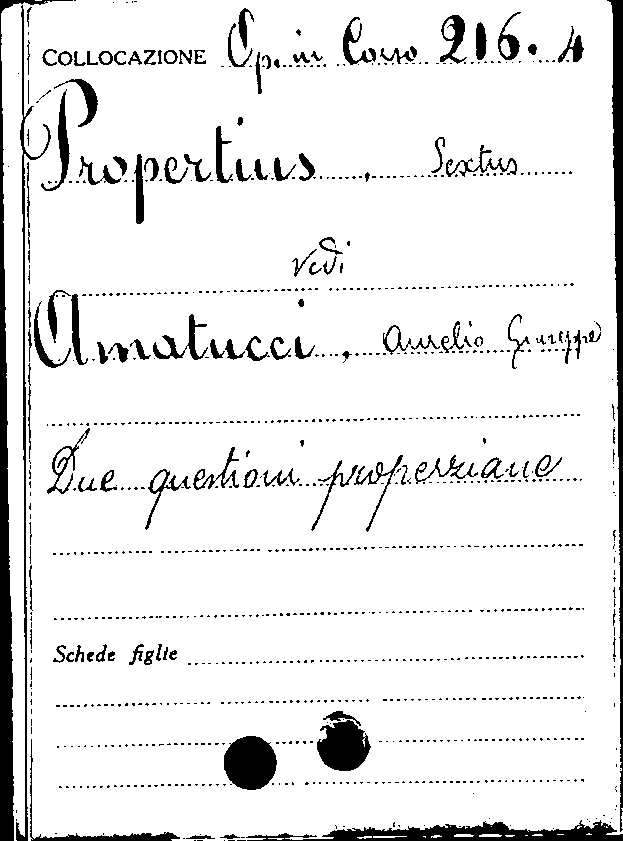 COLLOCAZIONE Op. in Corso 216. 4
Propertius, Sextus
Vedi
Amatucci, Aurelio Giuseppe
Due questioni properziane
Schede figlie